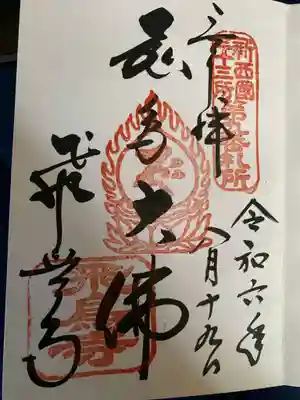 奉拝
新西國
三十三所
第九番札所
令和六年
八月十九日
飛鳥大佛
飛鳥寺
飛鳥寺